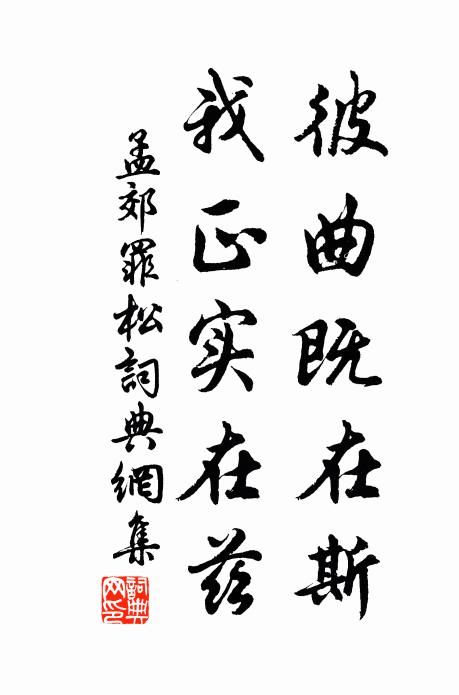 彼曲既在斯
我正实在兹
孟郊罪松詞典網集
詞典
网印